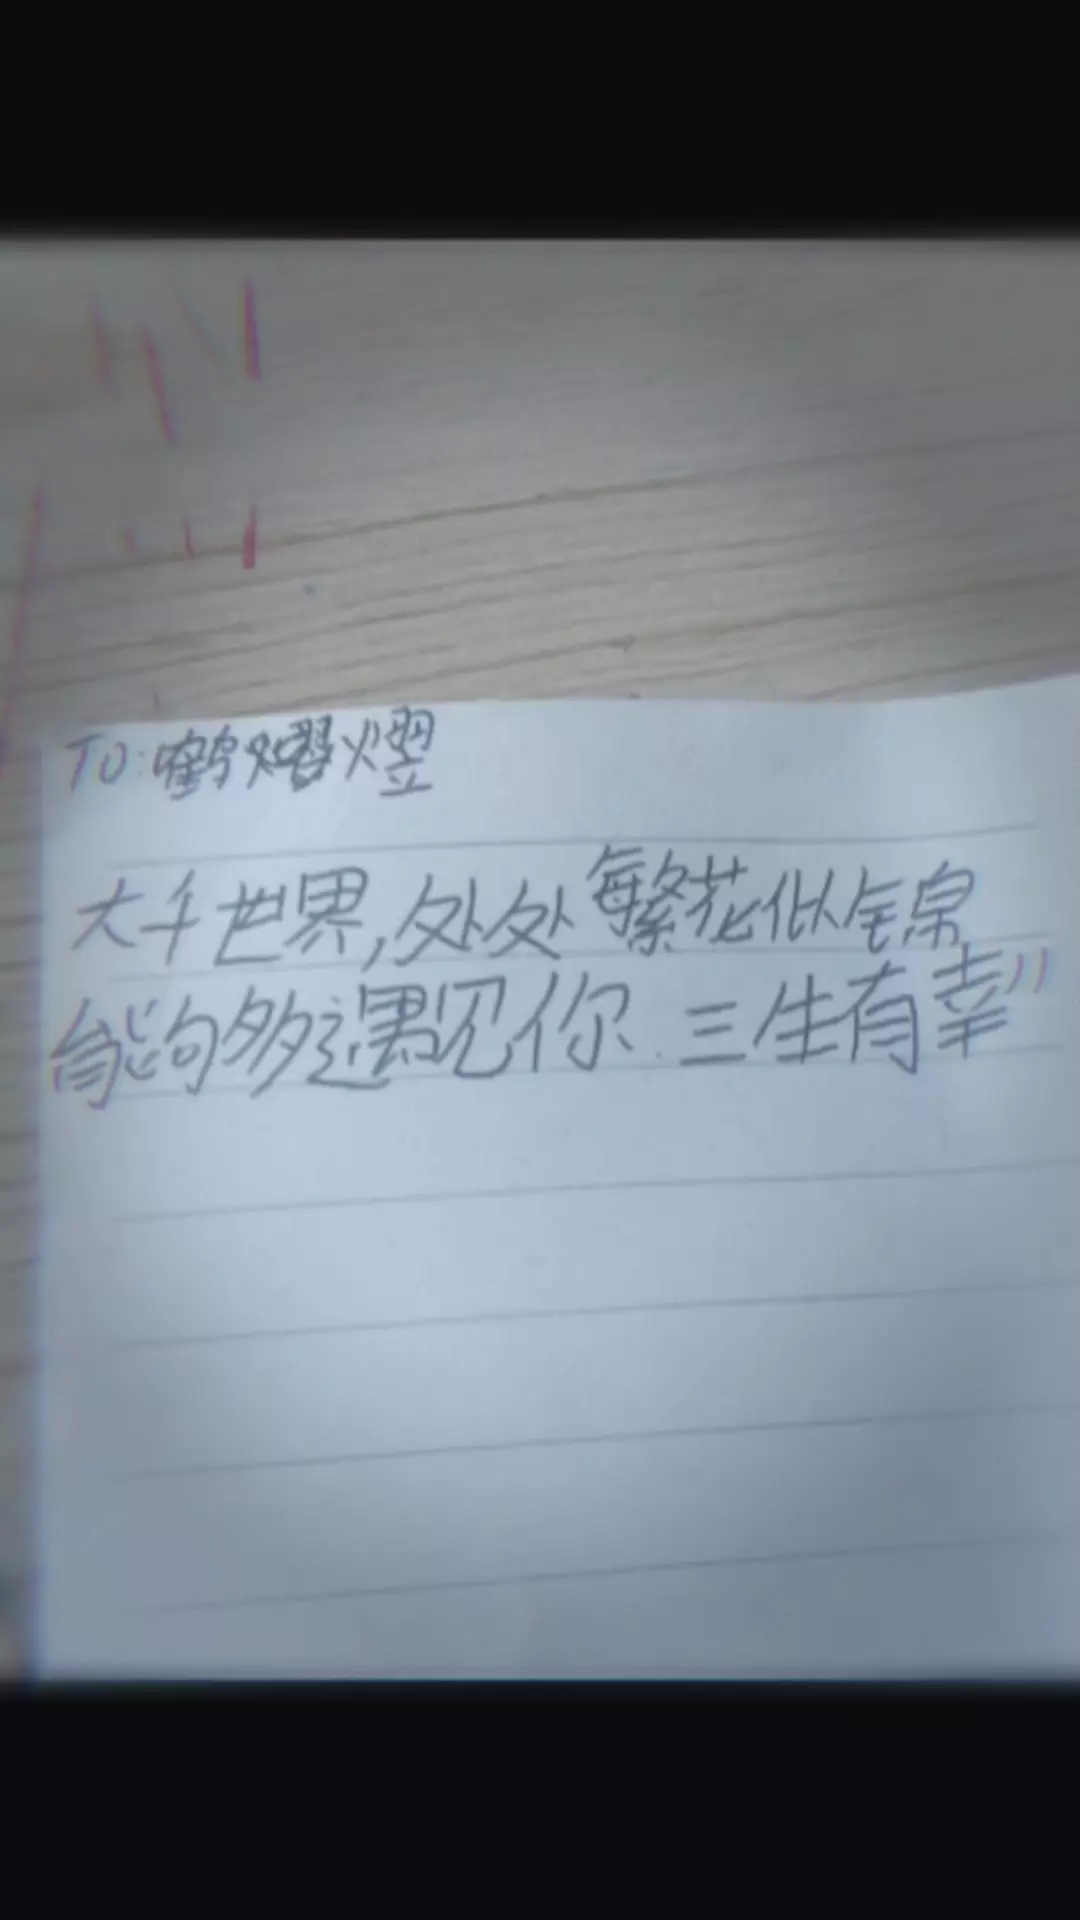 To:鹤熠熠
大千世界,处处繁花似锦
能够遇见你.三生有幸"